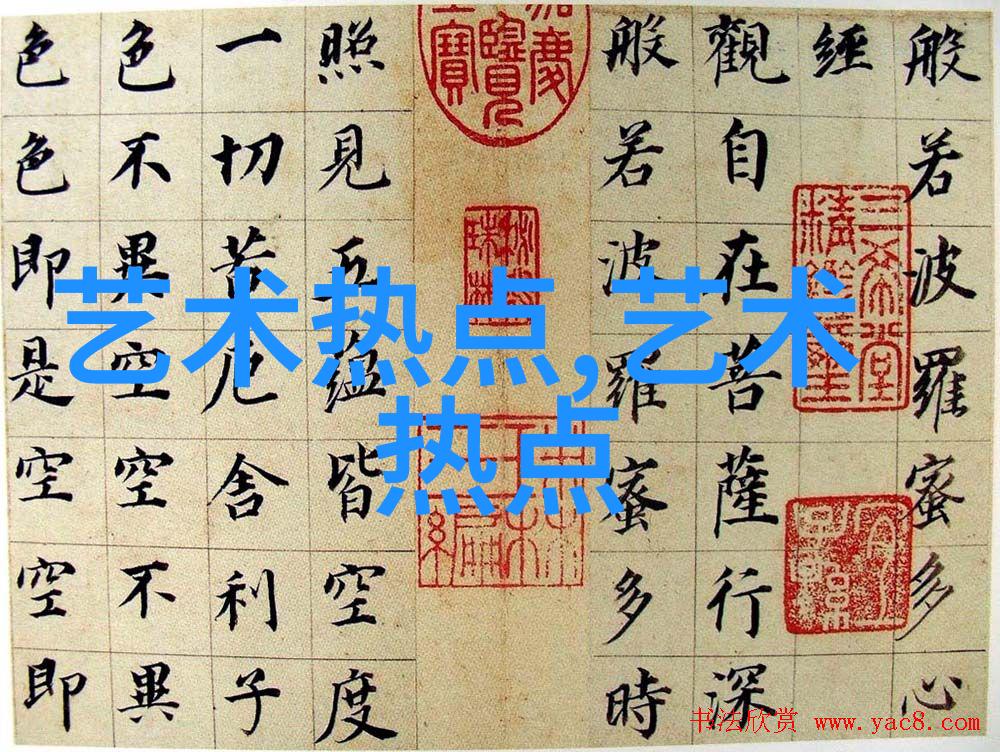 般若波羅蜜多心
經
觀自在菩薩行深
般若波羅蜜多時
照見五蘊皆空度
一切苦厄舍利子
色不異空空不異
色色即是空空即
三希堂精鑑璽
宜子孫
艺术热点,艺术
热点
书法欣赏 www.yac8.com